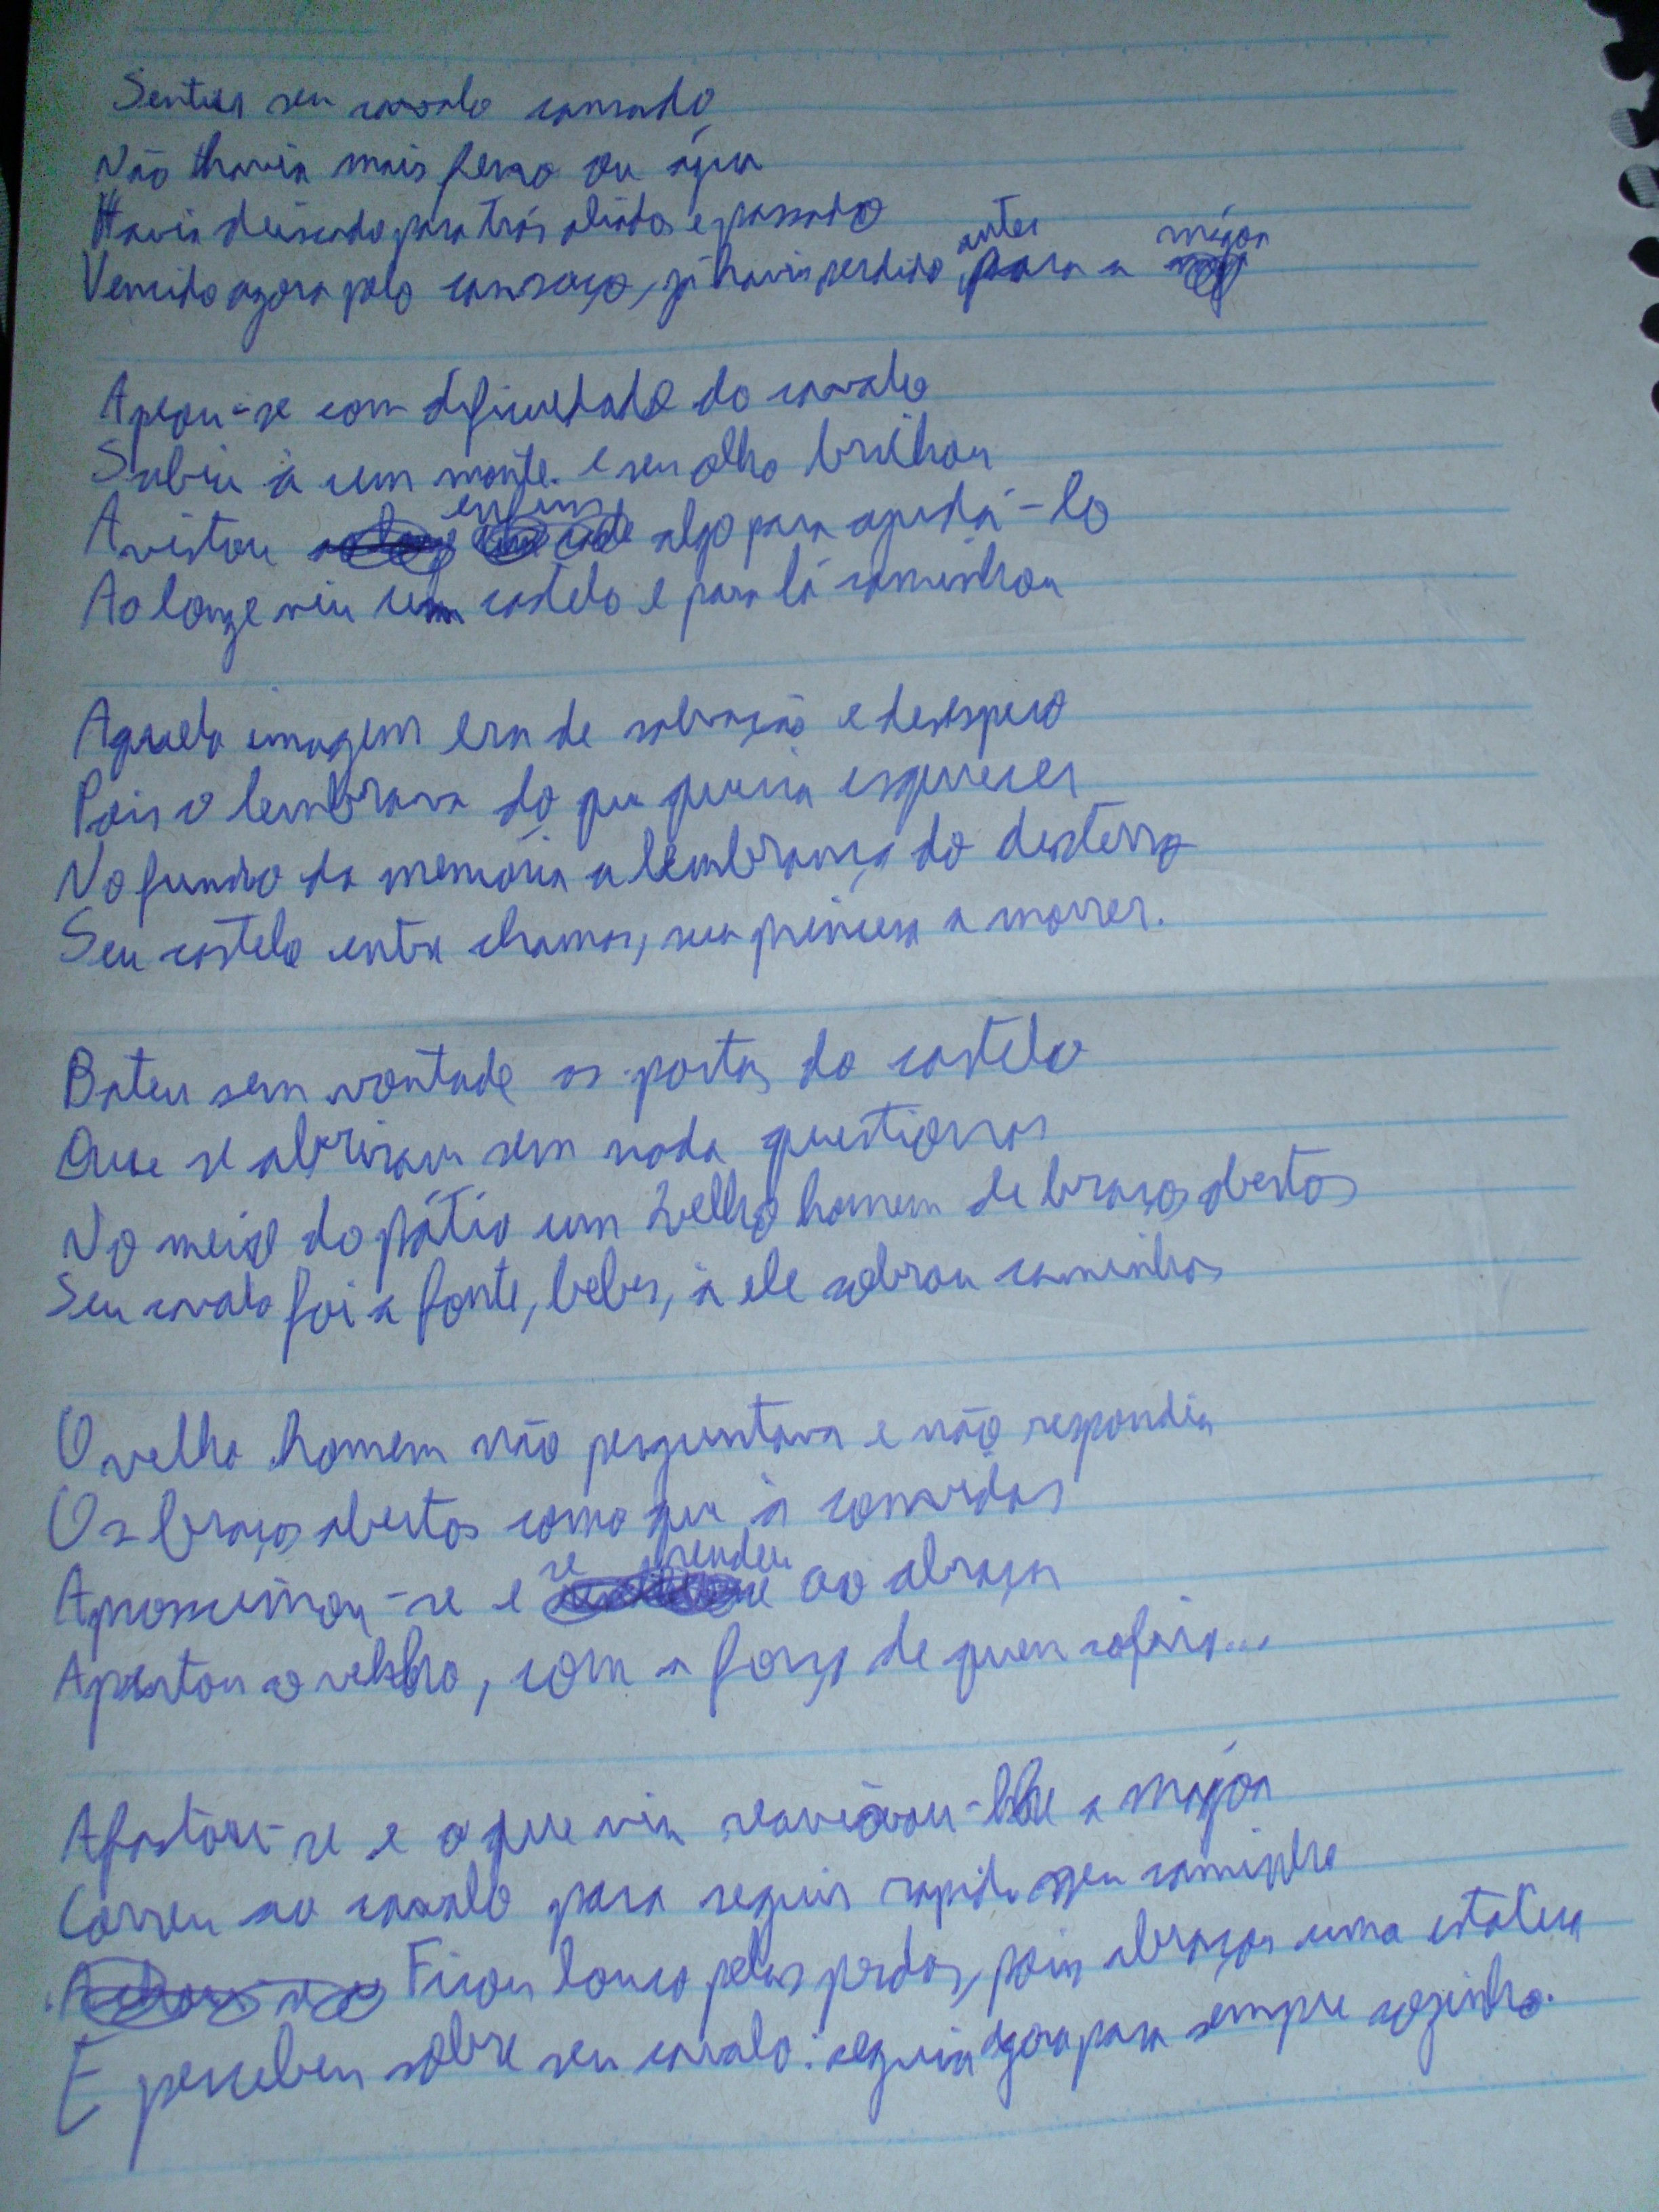 Sentiu seu cavalo cansado
Não havia mais feno ou água
Havia deixado para trás aliados e passado
Vencido agora pelo cansaço, já havia perdido antes para a mágoa

Apeou-se com dificuldade do cavalo
Subiu à um monte e seu olho brilhou
Avistou enfim algo para ajudá-lo
Ao longe viu um castelo e para lá caminhou

Aquela imagem era de salvação e desespero
Pois o lembrava do que queria esquecer
No fundo da memória a lembrança do desterro
Seu castelo entre chamas, sua princesa a morrer.

Bateu sem vontade as portas do castelo
Que se abriram sem nada questionar
No meio do pátio um velho homem de braços abertos
Seu cavalo foi a fonte, beber, à ele sobrou caminhar

O velho homem não perguntava e não respondia
Os braços abertos como que à convidar
Aproximou-se e se prendeu ao abraçar
Apertou o velho, com a força de quem sofria...

Afastou-se e o que via reavivou-lhe a mágoa
Correu ao cavalo para seguir rapido seu caminho
Ficou louco pelas perdas, pois abraçar uma estátua
E percebeu sobre seu cavalo: seguia agora para sempre sozinho.